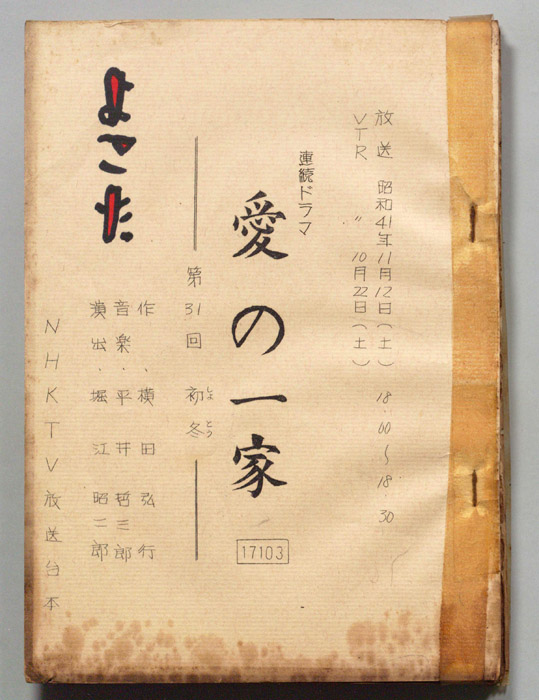 放送 昭和41年11月12日(土) 18.00〜18.30
VTR 〃 10月22日(土)
連続ドラマ
愛の一家
17103
第31回 初冬
しょ とう
作、横田弘行
音楽・平井哲三郎
演出・堀江昭二郎
よこた
NHKTV放送台本